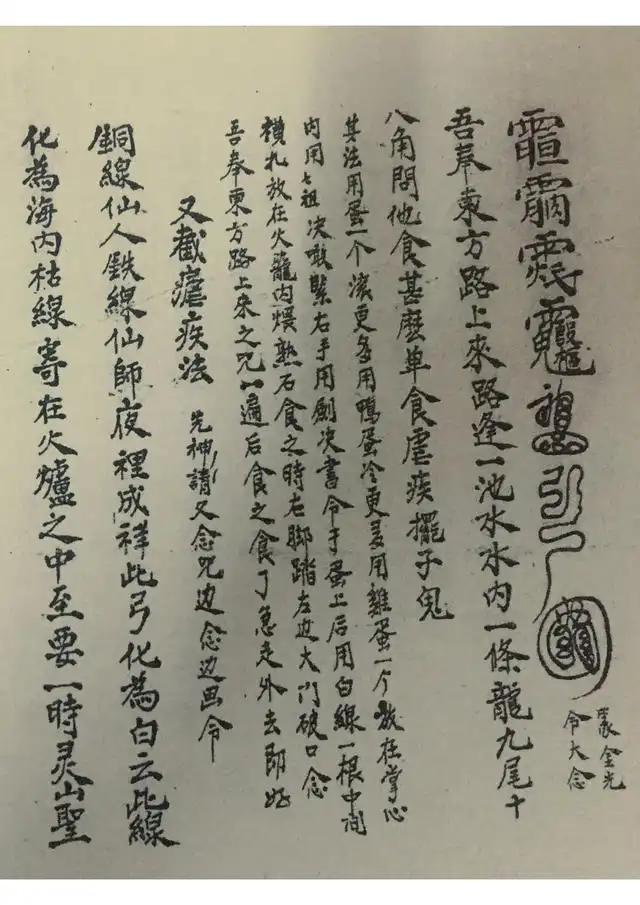 吾奉東方路上來路逢一池水水内一條龍九尾十
八角問他食甚麽单食虐疾擺子鬼
其法用蛋一个滚更多用鴨蛋冷更多用雞蛋一个放在掌心
内用七祖决噉緊右手用劍决書令于蛋上后用白線一根中间
横扎放在火龍内煨熟食之時右脚踏左边大門破口念
吾奉東方路上來之咒一遍后食之食了急走外去即好
又截瘧疾法
先神請又念咒边念边画令
銅線仙人鉄線仙師夜裡成祥此弓化為白云此線
化為海内枯線寄在火爐之中至要一時灵山聖
金光
令大念